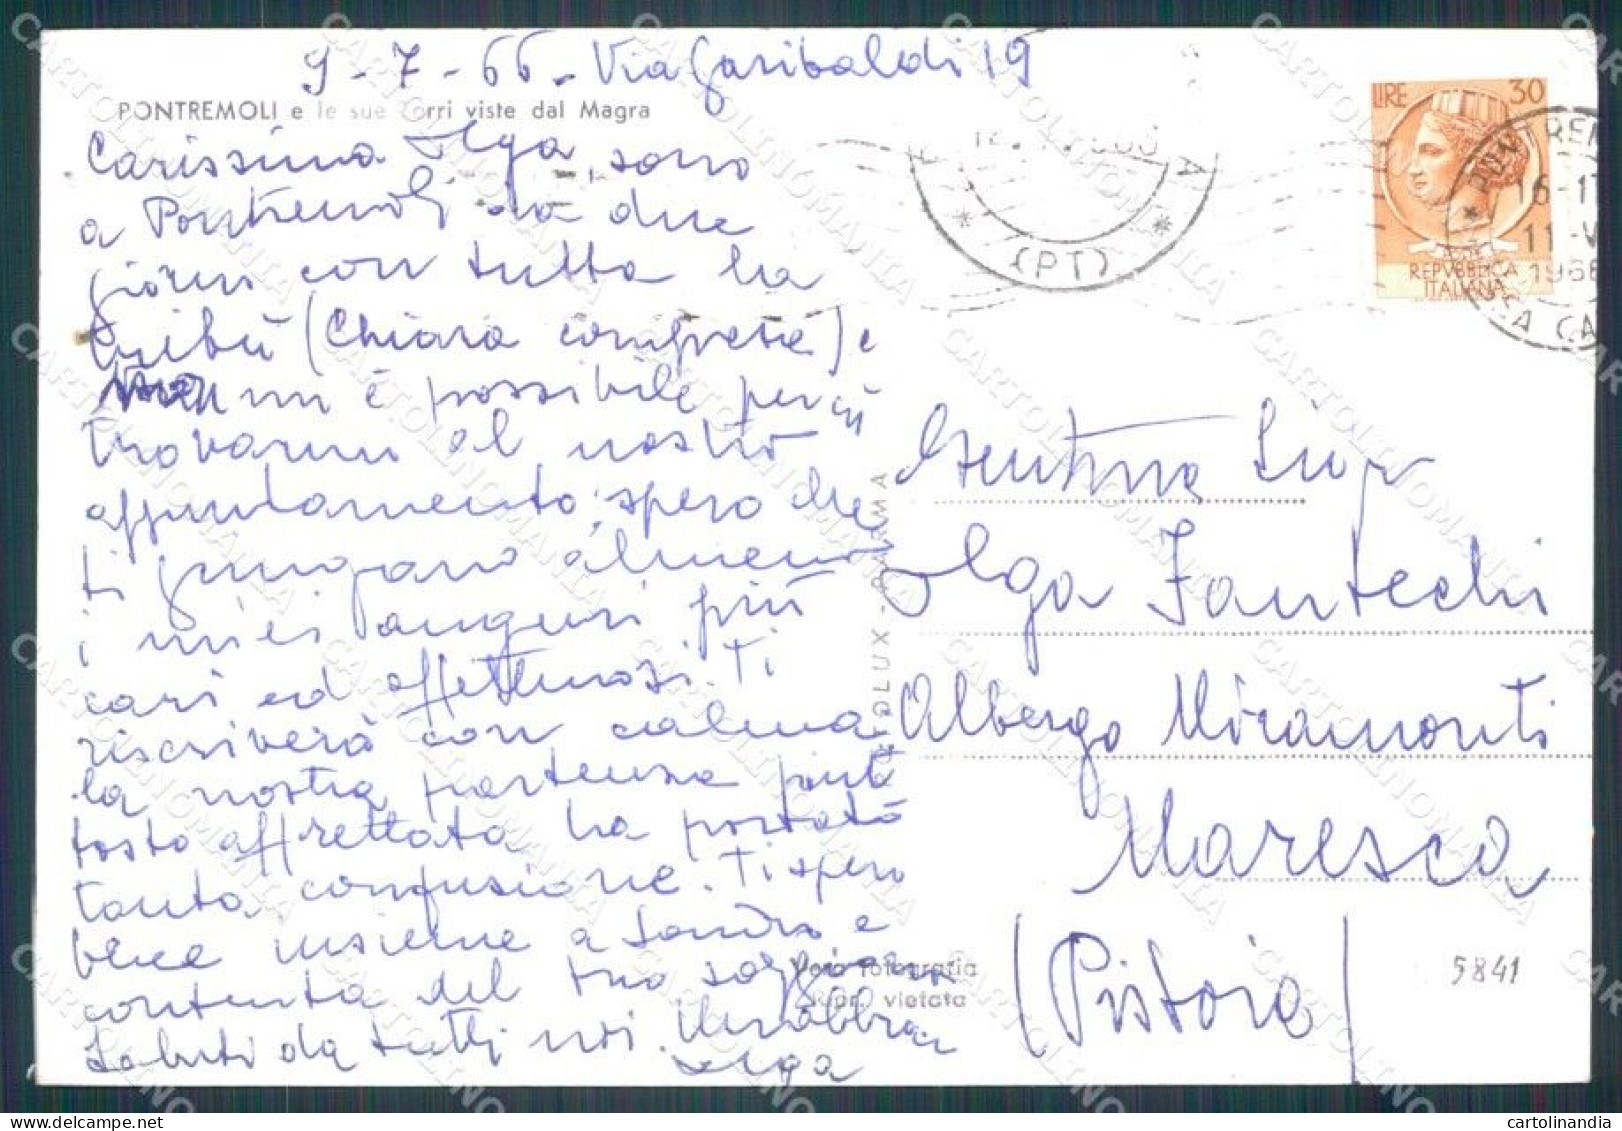 9-7-66 - Via Garibaldi 19
PONTREMOLI e le sue Torri viste dal Magra
Carissima Olga, sono
a Pontremoli da due
giorni con tutta la
tribù (Chiara compresa) e
non mi è possibile perciò
trovarmi al nostro
appuntamento; spero che
ti giungano almeno
i miei auguri più
cari ed affettuosi. Ti
riscriverò con calma
la nostra partenza piut
tosto affrettata ha portato
tanta confusione. Ti spero
bene insieme a Sandra e
contenta del tuo soggiorno
Saluti da tutti noi. Un abbraccio
Olga
LIRE 30
REPVBBLICA
ITALIANA
PONTREM
16-17
11-V
1966
(PT)
Gentma Sig.ra
Olga Fantechi
Albergo Miramonti
Maresca
(Pistoia)
PARMA
Vera fotografia
Ripr. vietata
5841
CARTOLINOMANIA
cartolinandia